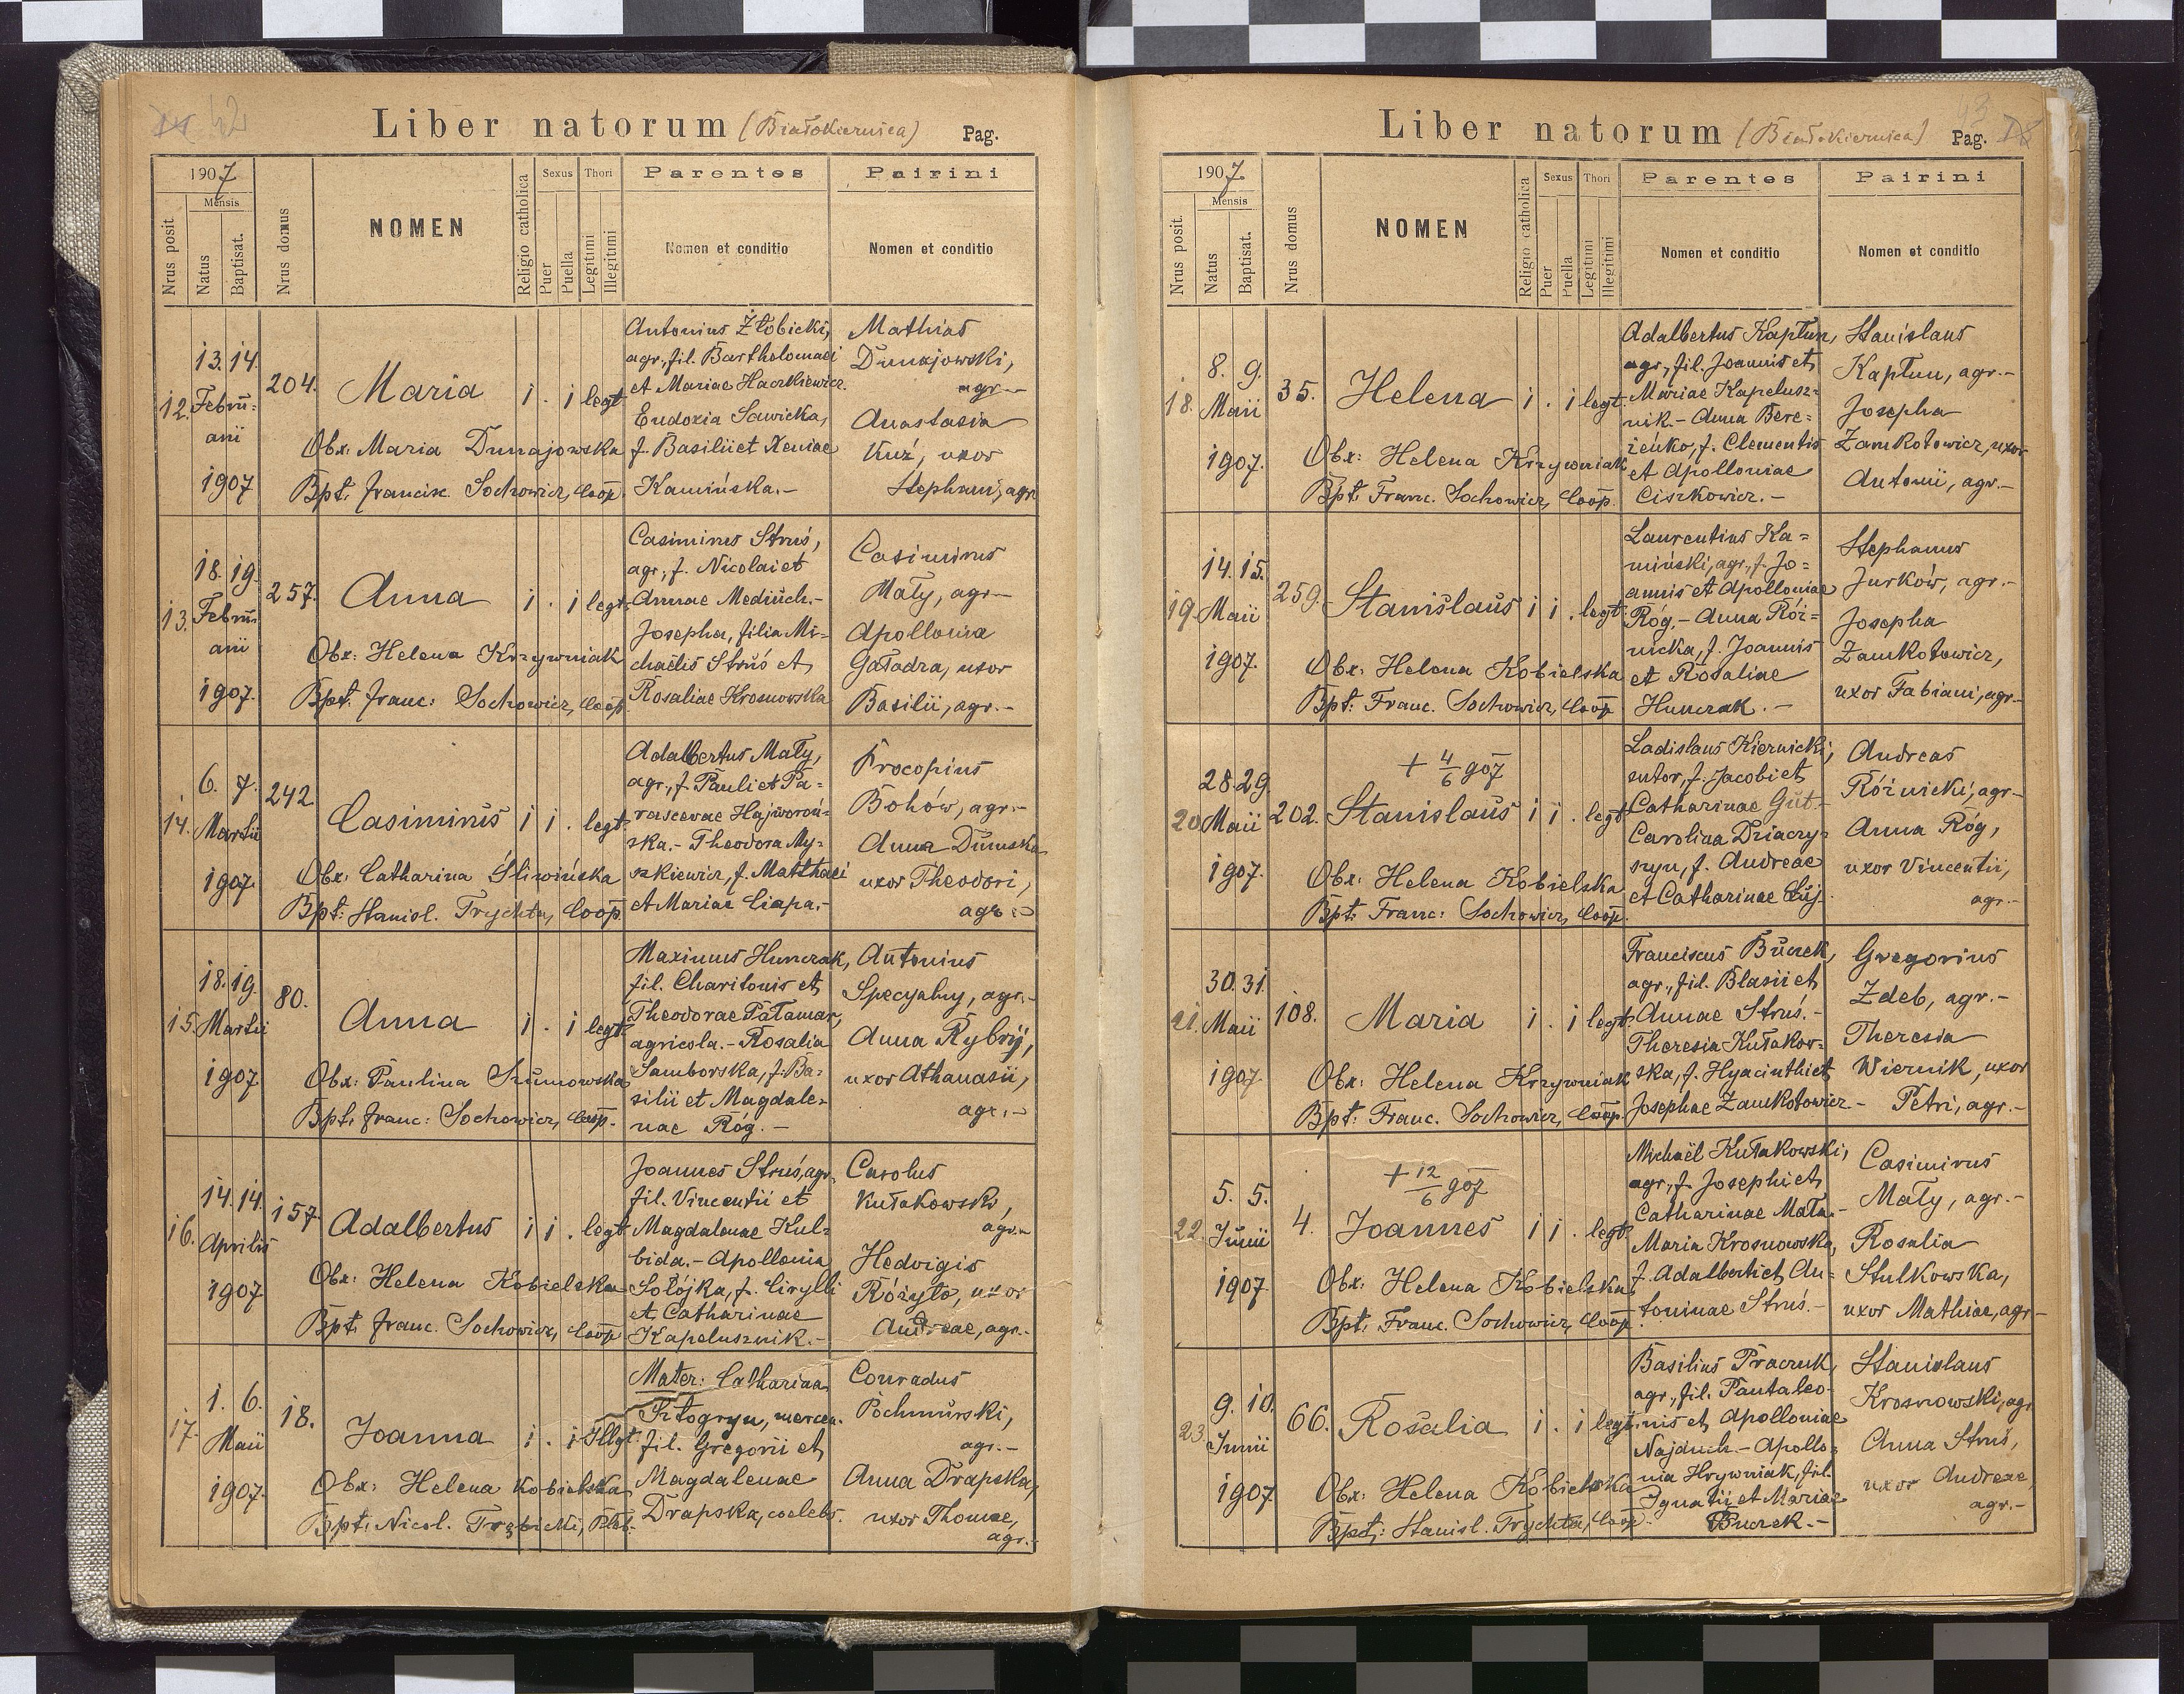 42
Liber natorum (Białokiernica) Pag.
1907
Mensis
Nrus posit
Natus
Baptisat.
Nrus domus
NOMEN
Religio catholica
Sexus
Puer
Puella
Thori
Legitimi
Illegitimi
Parentes
Nomen et conditio
Patrini
Nomen et conditio
12. 13. 14. Februarii 1907
204.
Maria
1 . 1 legt.
Obx: Maria Dunajowska
Bpt. Francisc. Sochowicz, Coop.
Antonius Żłobicki,
agr., fil. Bartholomaei
et Mariae Haczkiewicz.
Eudoxia Sawicka,
f. Basilii et Xeniae
Kamińska.-
Mathias
Dunajowski,
agr.-
Anastasia
Kuź, uxor
Stephani, agr.
13. 18. 19. Februarii 1907.
257.
Anna
1 . 1 legt.
Obx: Helena Krzywniak
Bpt. Franc: Sochowicz, Coop.
Casimirus Struś,
agr., f. Nicolai et
Annae Mediuch.-
Josepha, filia Mi-
chaëlis Struś et
Rosaliae Krosnowska
Casimirus
Mały, agr.-
Apollonia
Gaładra, uxor
Basilii, agr.-
14. 6. 7. Martii 1907.
242
Casimirus
1 1 . legt.
Obx: Catharina Śliwińska
Bpt: Stanisl. Trychta, Coop.
Adalbertus Mały,
agr., f. Pauli et Pa=
rascevae Hajworoń-
ska.- Theodora My-
szkiewicz, f. Matthaei
et Mariae Ciapa.-
Procopius
Bohów, agr.-
Anna Dumska
uxor Theodori,
agr.-
15. 18. 19. Martii 1907
80.
Anna
1 . 1 legt.
Obx: Paulina Szumowska
Bpt. Franc: Sochowicz, Coop.
Maximus Hunczak,
fil. Charitonis et
Theodorae Pałamar,
agricola.- Rosalia
Samborska, f. Ba-
silii et Magdale-
nae Róg.-
Antonius
Specyalny, agr.-
Anna Rybij,
uxor Athanasii,
agr.-
16. 14. 14. Aprilis 1907
157.
Adalbertus
1 1 . legt.
Obx: Helena Kobielska
Bpt. Franc. Sochowicz, Coop.
Joannes Struś, agr.,
fil. Vincentii et
Magdalenae Kul-
bida.- Apollonia
Sołojka, f. Cirylli
et Catharinae
Kapelusznik.-
Carolus
Kułakowski,
agr.-
Hedvigis
Różyło, uxor
Andreae, agr.-
17. 1. 6. Maii 1907.
18.
Joanna
1 . 1 Illgt.
Obx: Helena Kobielska
Bpt. Nicol. Trębicki, Pleb.
Mater: Catharina
fil. Gregorii et
Magdalenae
Drapska, coelebs.
Conradus
Pochmurski,
agr.-
Anna Drapska,
uxor Thomae,
agr.-
43
Liber natorum (Białokiernica) Pag.
1907.
Mensis
Nrus posit
Natus
Baptisat.
Nrus domus
NOMEN
Religio catholica
Sexus
Puer
Puella
Thori
Legitimi
Illegitimi
Parentes
Nomen et conditio
Patrini
Nomen et conditio
18. 8. 9. Maii 1907.
35.
Helena
1 . 1 legt.
Obx: Helena Krzywniak
Bpt. Franc. Sochowicz, Coop.
Adalbertus Kaptun,
agr., fil. Joannis et
Mariae Kapelusz=
nik.- Anna Bere=
zieńko, f. Clementis
et Apolloniae
Ciszkowicz.-
Stanislaus
Kaptun, agr.-
Josepha
Zamkotowicz, uxor
Antonii, agr.-
19. 14. 15. Maii 1907.
259.
Stanislaus
1 1 . legt.
Obx: Helena Kobielska
Bpt: Franc. Sochowicz, Coop
Laurentius Ka=
miński, agr., f. Jo=
annis et Apolloniae
Róg.- Anna Róż=
nicka, f. Joannis
et Rosaliae
Hunczak.-
Stephanus
Jurków, agr.-
Josepha
Zamkotowicz,
uxor Fabiani, agr.-
20. 28. 29. Maii 1907.
202.
+ 4/6 907
Stanislaus
1 1 . legt.
Obx: Helena Kobielska
Bpt. Franc: Sochowicz, Coop.
Ladislaus Kiernicki,
sutor, f. Jacobi et
Catharinae Gut.-
Carolina Dziaczy-
szyn, f. Andreae
et Catharinae
Andreas
Różnicki, agr.-
Anna Róg,
uxor Vincentii,
agr.-
21. 30. 31. Maii 1907.
108.
Maria
1 . 1 legt.
Obx: Helena Krzywniak
Bpt: Franc. Sochowicz, Coop.
Franciscus Buczek,
agr., fil. Blasii et
Annae Struś.-
Theresia Kułakow-
ska, f. Hyacinthi et
Josephae Zamkotowicz.-
Gregorius
Zdeb, agr.-
Theresia
Wiernik, uxor
Petri, agr.-
22. 5. 5. Junii 1907
4.
+ 12/6 907
Joannes
1 1 . legt.
Obx: Helena Kobielska
Bpt. Franc. Sochowicz, Coop.
Michaël Kułakowski,
agr., f. Josephi et
Catharinae Mała.-
Maria Krosnowska,
f. Adalberti et An=
toninae Struś.-
Casimirus
Mały, agr.-
Rosalia
Stulkowska,
uxor Mathiae, agr.-
23. 9. 10. Junii 1907
66.
Rosalia
1 . 1 legt.
Obx: Helena Kobielska
Bpt: Stanisl. Trychta, Coop.
Basilius Praczuk,
agr., fil. Pantaleo-
nis et Apolloniae
Najduch.- Apollo=
nia Hrywniak, fil.
Ignatii et Mariae
Buczek.-
Stanislaus
Krosnowski, agr.
Anna Struś,
uxor Andreae,
agr.-